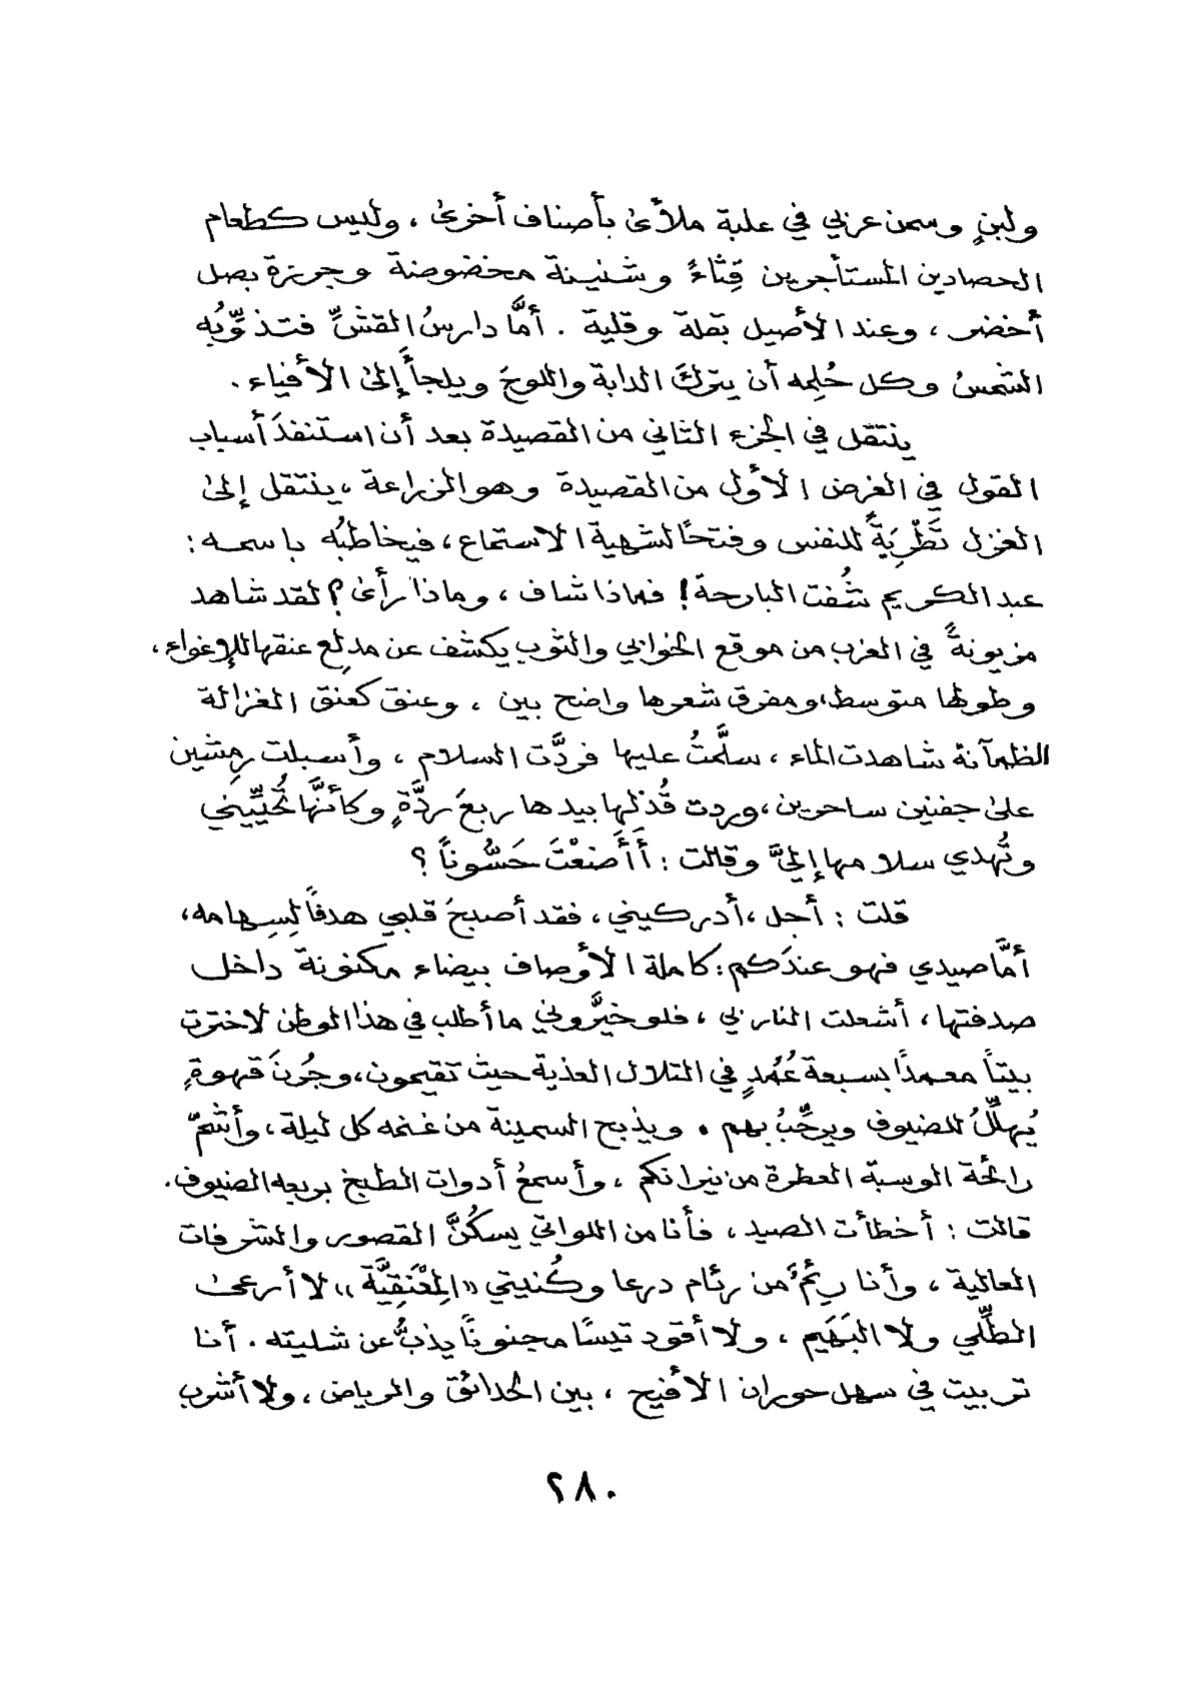 ولبنٍ وسمن عربي في علبة ملأى بأصناف أخرى ، وليس كطعام
الحصادين المستأجرين قِثّاءً وشنينة مخضوضة وجرزة بصل
أخضر ، وعند الأصيل بقلة وقلية . أمَّا دارسُ القشِّ فتذوِّبُه
الشمسُ وكل حُلِمه أن يتركَ الدابة واللوحَ ويلجأَ إلى الأفياء .
ينتقل في الجزء الثاني من القصيدة بعد أن استنفدَ أسباب
القول في الغرض الأول من القصيدة وهو الزراعة ، ينتقل إلى
الغزل تَطْرِيَةً للنفس وفتحًا لشهية الاستماع ، فيخاطبُه باسمه :
عبد الكريم شُفت البارحة ! فماذا شاف ، وماذا رأى ؟ لقد شاهد
مزيونةً في الغرب من موقع الخوابي والثوب يكشف عن مدلِع عنقها للإغواء ،
وطولها متوسط ، ومفرق شعرها واضح بين ، وعنق كعنق الغزالة
الظمآنة شاهدت الماء ، سلَّمتُ عليها فردَّت السلام ، وأسبلت رِمشين
على جفنين ساحرين ، وردت قُذلها بيدها ربعَ ردَّةٍ وكأنَّها تُحَيِّيني
وتُهدي سلامها إليَّ وقالت : أَأَضَعْتَ حَسُّوناً ؟
قلت : أجل ، أدركيني ، فقد أصبحَ قلبي هدفاً لِسِهامه ،
أمَّا صيدي فهو عندَكم : كاملة الأوصاف بيضاء مكنونة داخل
صدفتها ، أشعلت النار بي ، فلو خيَّروني ما أطلب في هذا الوطن لاخترت
بيتاً معمداً بسبعة عُمُدٍ في التلال العذية حيث تقيمون ، وجُرنَ قهوةٍ
يُهلِّلُ للضيوف ويرحِّبُ بهم . ويذبح السمينة من غنمه كل ليلة ، وأشمّ
رائحة الوسبة العطرة من نيرانكم ، وأسمعُ أدوات الطبخ بربعه الضيوف .
قالت : أخطأت الصيد ، فأنا من اللواتي يسكُنَّ القصور والشرفات
العالية ، وأنا رئمٌ من رئام درعا وكُنيتي «المِعْنَقِيَّة» لا أرعى
الطِّلي ولا البَهَيم ، ولا أقود تيسًا مجنوناً يذبُّ عن شليته . أنا
تربيت في سهل حوران الأفيح ، بين الحدائق والرياض ، ولا أشرب
٢٨٠